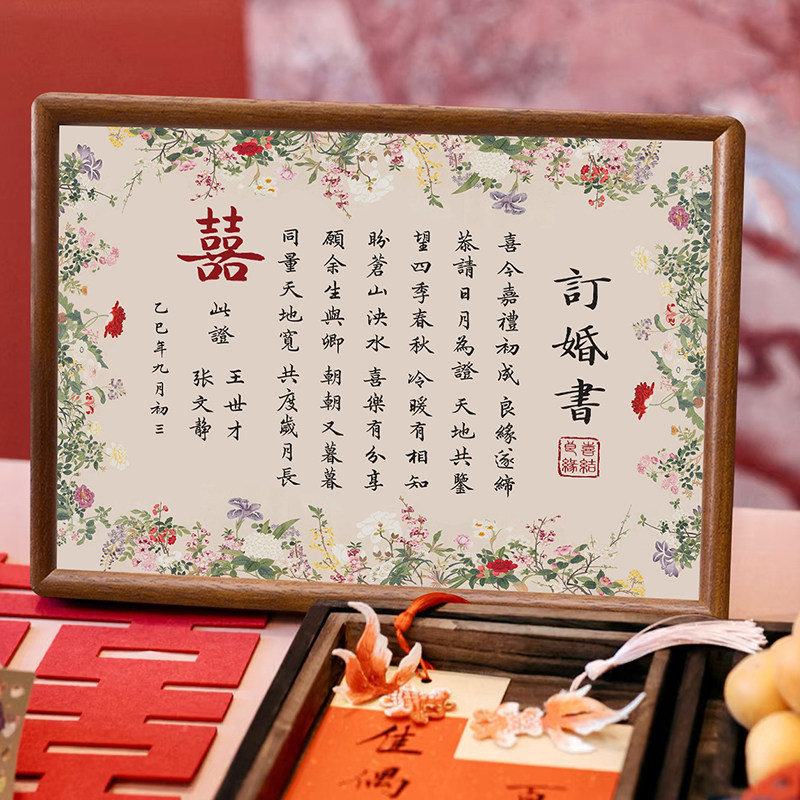 訂婚書
喜結
良緣
喜今嘉禮初成 良緣遂締
恭請日月為證 天地共鑒
望四季春秋 冷暖有相知
盼蒼山泱水 喜樂有分享
願余生與卿 朝朝又暮暮
同量天地寬 共度歲月長
囍
此證
王世才
张文静
乙巳年九月初三
佳偶
百